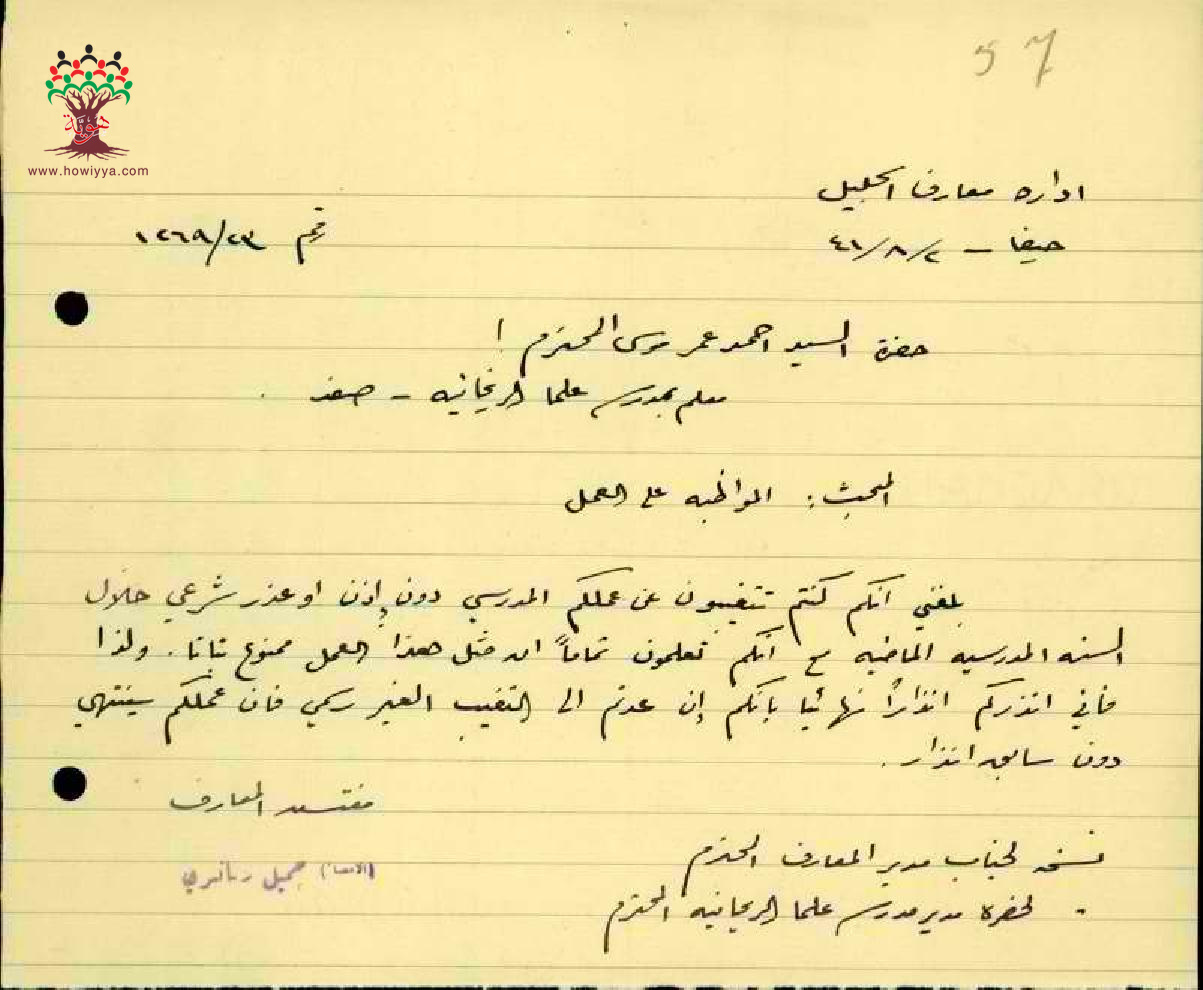 57
هوية
www.howiyya.com
اداره معارف الجليل
حيفا - ٢/٨/٤١
رقم ١٢٦٩/٢٣
حضرة السيد احمد عمر موسى المحترم !
معلم بمدرسة علما الريحانيه - صفد .
المبحث : المواظبه على العمل
بلغني انكم كنتم تتغيبون عن عملكم المدرسي دون إذن او عذر شرعي خلال
السنه المدرسيه الماضيه مع انكم تعلمون تماماً ان مثل هذا العمل ممنوع بتاتا . ولذا
فاني انذركم انذاراً نهائيا بانكم إن عدتم الى التغيب الغير رسمي فان عملكم سينتهي
دون سابق انذار .
مفتش المعارف
(الامضاء) جميل
نسخه لجناب مدير المعارف المحترم
- لحضرة مدير مدرسة علما الريحانيه المحترم